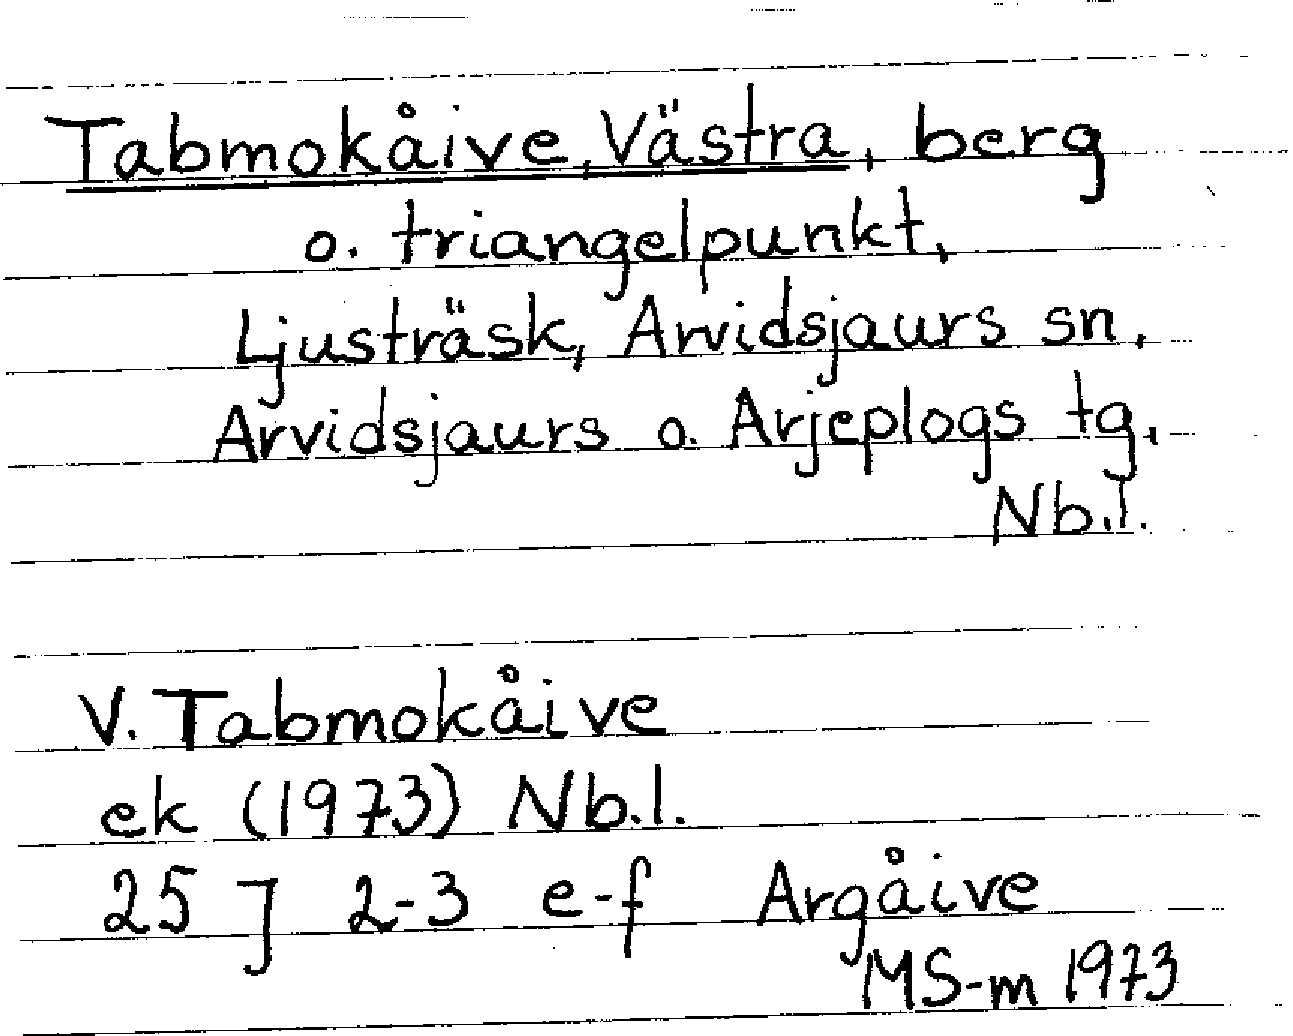 Tabmokåive, Västra, berg
o. triangelpunkt,
Ljusträsk, Arvidsjaurs sn,
Arvidsjaurs o. Arjeplogs tg,
Nb.l.
V. Tabmokåive
ek (1973) Nb.l.
25 J 2-3 e-f Argåive
MS-m 1973